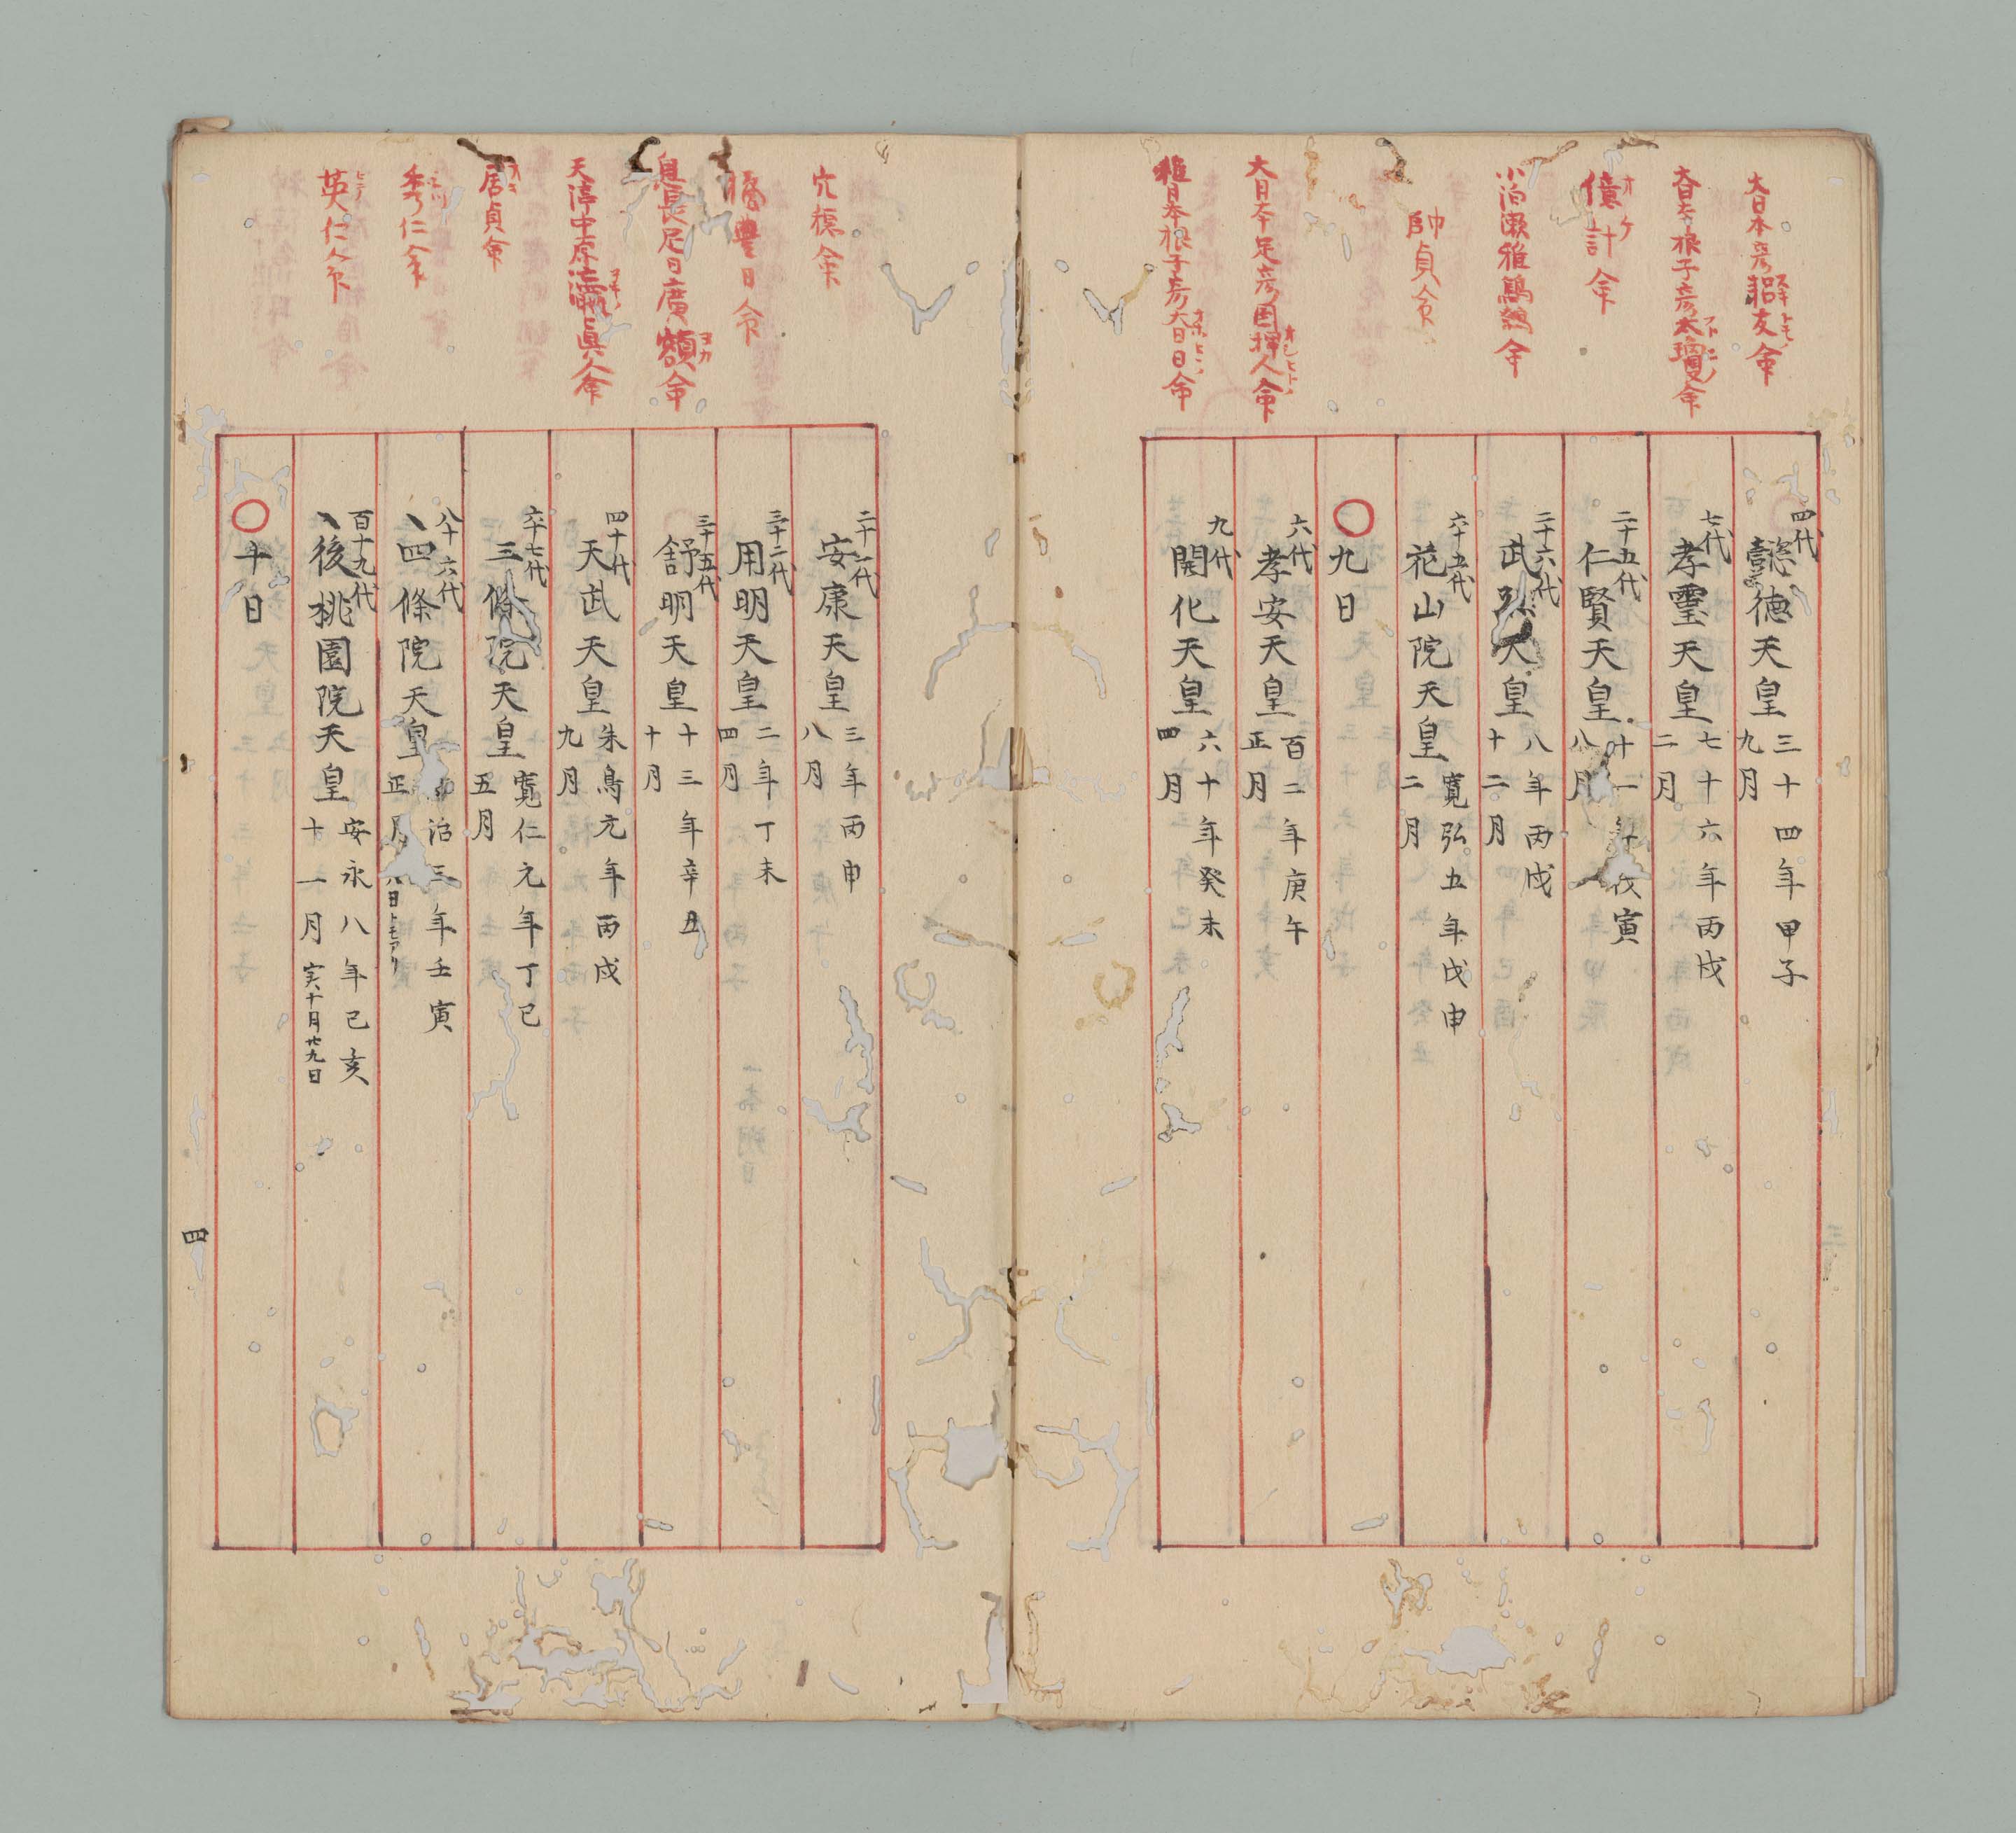 大日本彦耜友命
スキトモノ
四代
懿徳天皇
三十四年甲子
九月
大日本根子彦太瓊命
フトニノ
七代
孝霊天皇
七十六年丙戌
二月
億計命
オケ
二十五代
仁賢天皇
十一年戊寅
八月
小泊瀬稚鷦鷯命
二十六代
武烈天皇
八年丙戌
十二月
師貞命
六十五代
花山院天皇
寛弘五年戊申
二月
九日
大日本足彦国押人命
オシヒトノ
六代
孝安天皇
百二年庚午
正月
稚日本根子彦大日日命
オホヒヒノ
九代
開化天皇
六十年癸未
四月
穴穂命
二十一代
安康天皇
三年丙申
八月
橘豊日命
三十二代
用明天皇
二年丁未
四月
息長足日廣額命
ヌカ
三十五代
舒明天皇
十三年辛丑
十月
天渟中原瀛真人命
ヲキノ
四十代
天武天皇
朱鳥元年丙戌
九月
居貞命
オキ
六十七代
三條院天皇
寛仁元年丁巳
五月
秀仁命
ミツ
八十六代
四條院天皇
治三年壬寅
正月
八日トモアリ
英仁命
ヒデ
百十九代
後桃園院天皇
安永八年己亥
十一月 実十月廿九日
十日
四